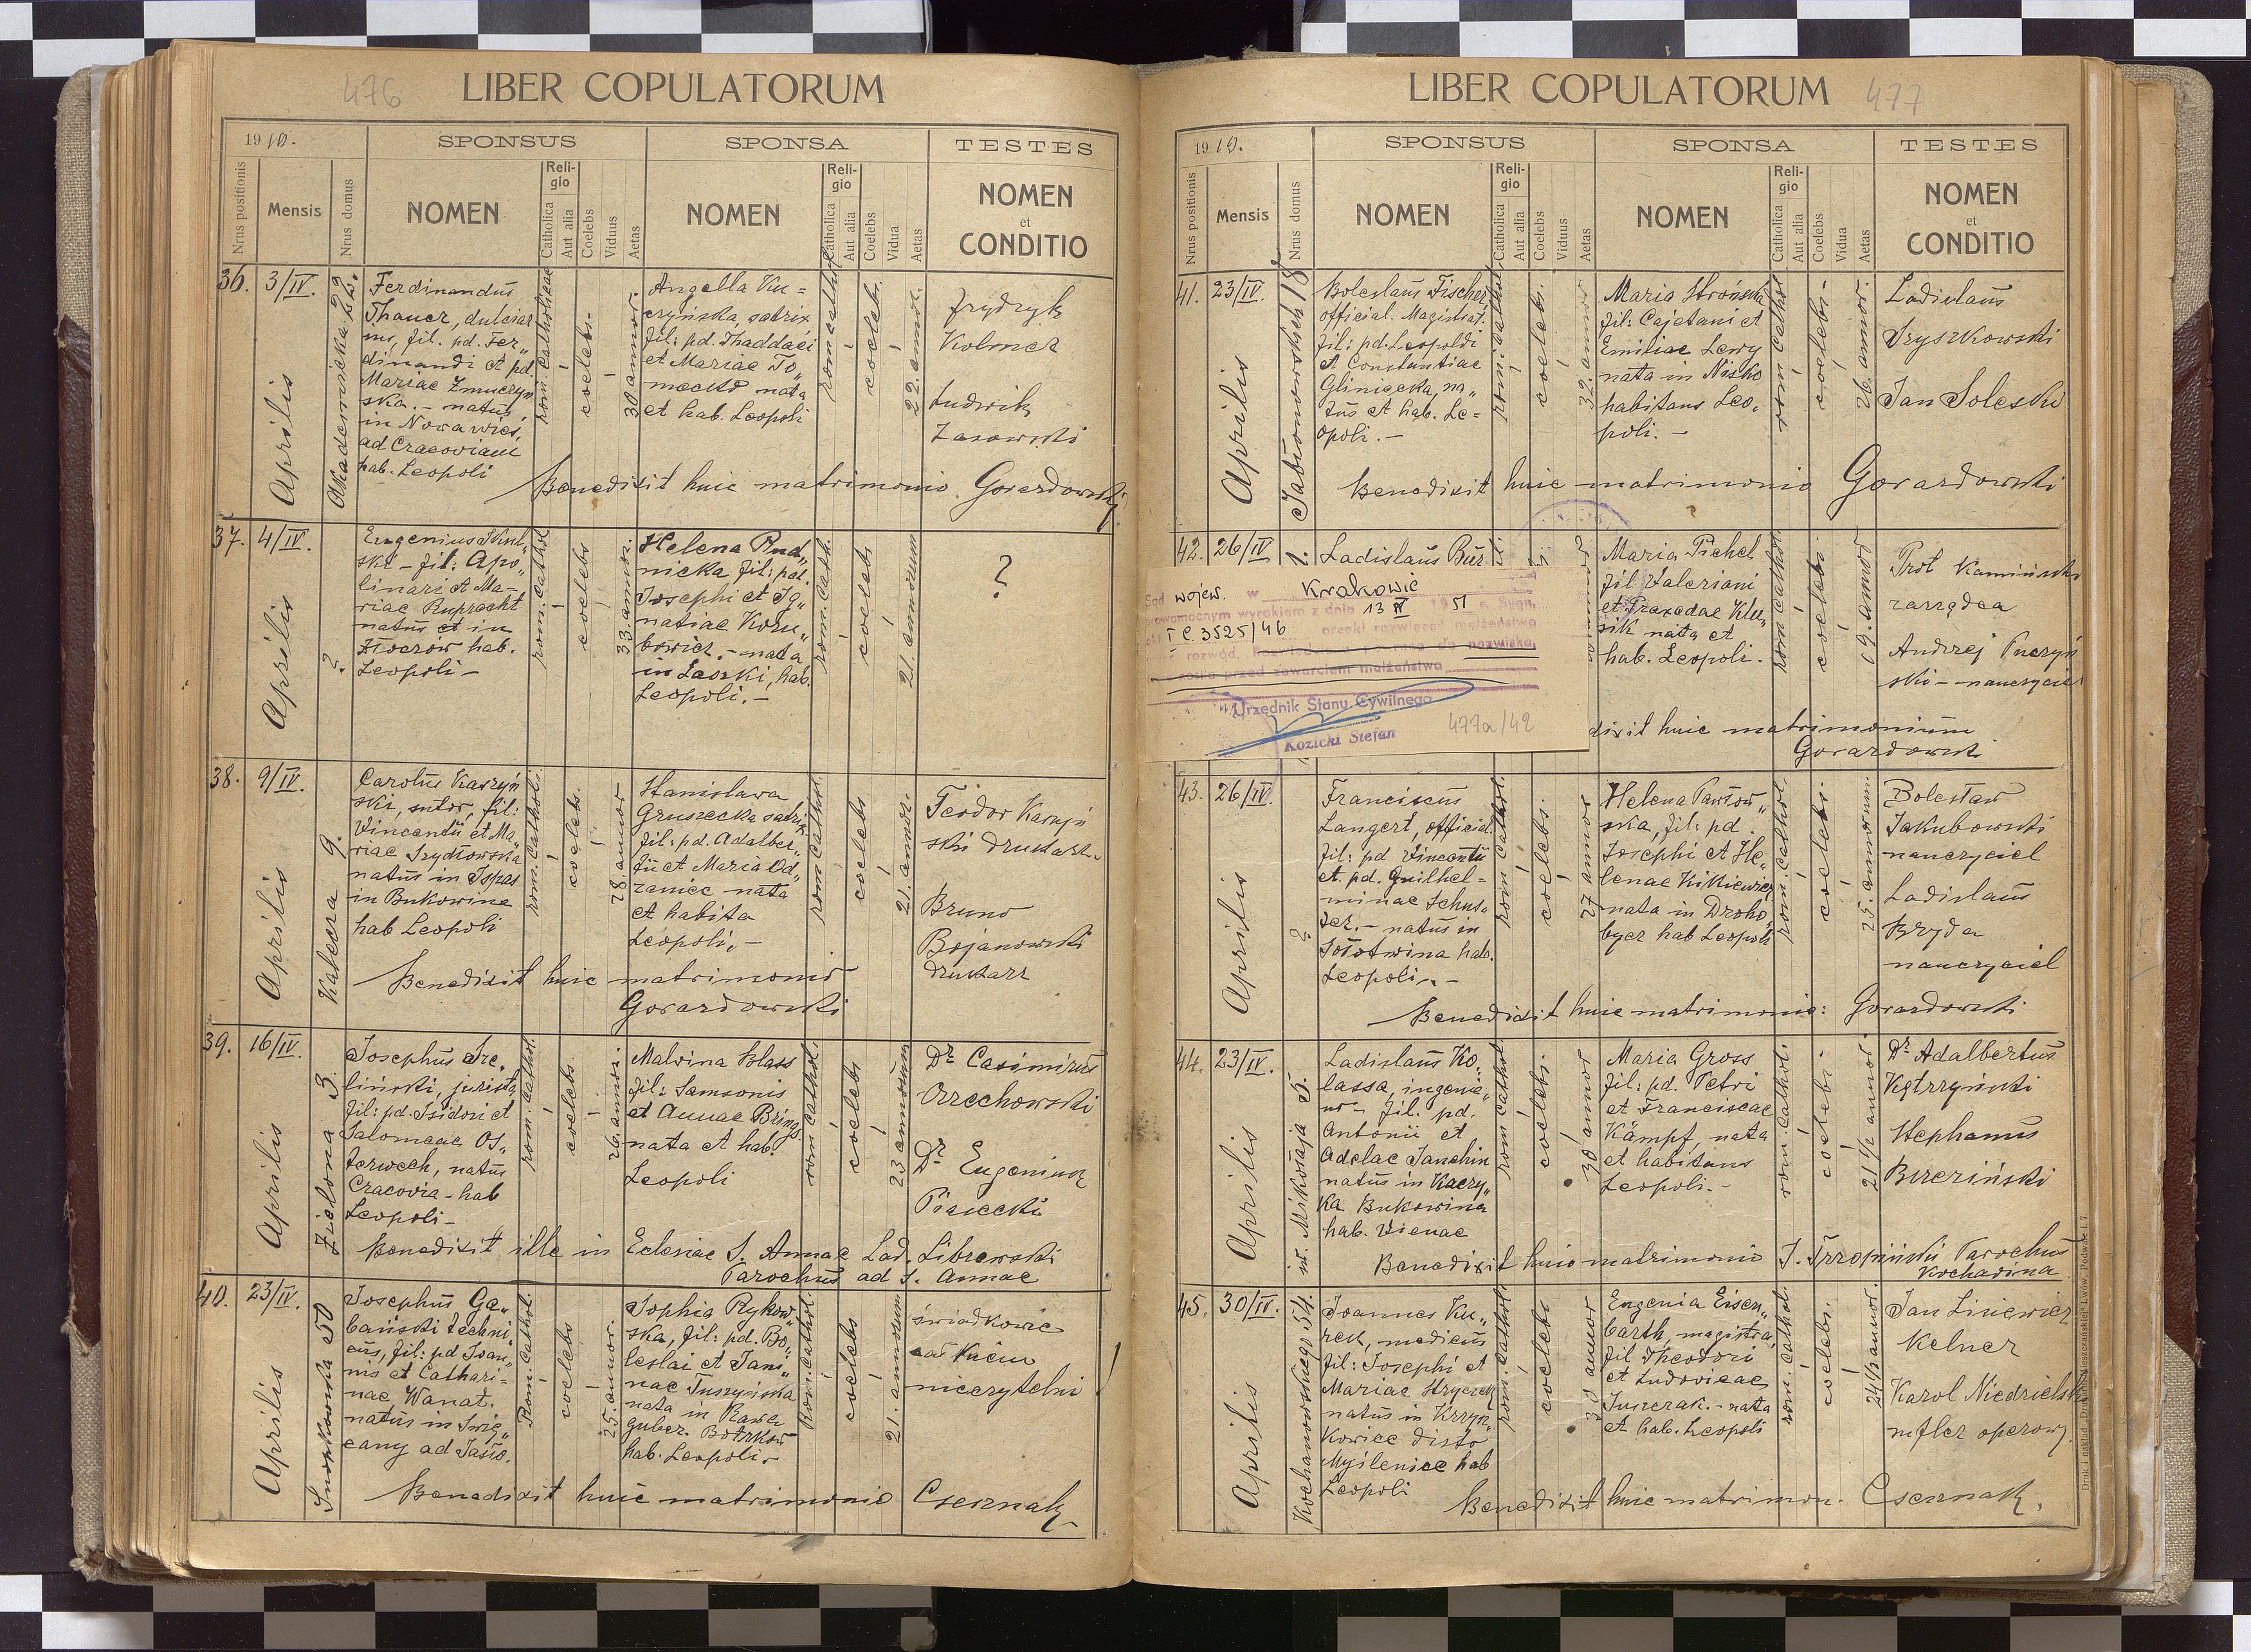 476
LIBER COPULATORUM
1910.
SPONSUS
SPONSA
TESTES
Nrus positionis
Mensis
Nrus domus
NOMEN
Religio
Catholica
Aut alia
Coelebs
Viduus
Aetas
NOMEN
Religio
Catholica
Aut alia
Coelebs
Vidua
Aetas
NOMEN
et
CONDITIO
36. 3/IV.
Aprilis
Ferdinandus
Thauer, dulciar
ius, fil. pd. Fer„
dinandi et pd.
Mariae Zmuczyn
ska. - natus
in Nowawieś,
ad Cracoviam
hab. Leopoli
rom. catholicae
coelebs-
30 annor.
Angella Ku=
czyńska, satrix
fil: pd. Thaddaei
et Mariae To„
nata
et hab. Leopoli
rom cathol
coelebs.
22. annor.
Frydryk
Kolmer
Ludwik
Zasowski
Benedixit huic matrimonio. Gorazdowski
37. 4/IV.
Aprilis
?
Eugenius
ski - fil: Apo„
linari et Ma-
riae Ruprecht
natus et in
Złoczów hab.
Leopoli -
rom. cathol
coelebs
33. annor.
Helena Rud„
nicka fil: pd.
Josephi et Ig„
natiae Koru„
bowicz. - nata
in Laszki, hab.
Leopoli. -
rom. cath.
coelebs
21. annorum
?
38. 9/IV.
Aprilis
Kalecza 9.
Carolus Kaszyń
ski, sutor, fil:
Vincentii et Ma„
riae Szydłowska
natus in Ispas
in Bukowina
hab Leopoli
rom. cathol.
coelebs.
28 annor
Stanislava
Gruszecka satrix
fil: pd. Adalber„
tii et Maria Od„
raniec nata
et habita
Leopoli. -
rom cathol.
coelebs
21. annor.
Teodor Kaszyń
ski drukarz.
Bruno
Bojanowski
drukarz
Benedixit huic matrimonio
Gorazdowski
39. 16/IV.
Aprilis
Zielona 3.
Josephus Tre„
liński, jurista,
fil: pd. Isidori et
Salomeae Os„
terwech, natus
Cracovia - hab
Leopoli -
rom. cathol.
coelebs
26. annor.
Malvina Blass
fil: Samsonis
et Annae Brings.
nata et hab.
Leopoli
rom cathol.
coelebs
23 annorum
Dr Casimirus
Orzechowski
Dr Eugeniusz
Piasecki
Benedixit ille in Eclesiae S. Annae Lad. Librewski
Parochus ad S. Annae
40. 23/IV.
Aprilis
Snopkowska 50
Josephus Ga„
bański techni„
cus, fil: pd Joan„
nis et Cathari=
nae Wanat.
natus in Swię„
cany ad Jasło.
Rom. cathol.
coelebs
25. annor.
Sophia Rykow„
ska, fil: pd. Bo„
leslai et Jani„
nae Tuszyńska
nata in Rawa
guber. Piotrków
hab. Leopoli.
Rom. cathol
coelebs
21. annorum
świadkowie
nieczytelni !
Benedixit huic matrimonio Csernak
477
LIBER COPULATORUM
1910.
SPONSUS
SPONSA
TESTES
Nrus positionis
Mensis
Nrus domus
NOMEN
Religio
Catholica
Aut alia
Coelebs
Viduus
Aetas
NOMEN
Religio
Catholica
Aut alia
Coelebs
Vidua
Aetas
NOMEN
et
CONDITIO
41. 23/IV.
Aprilis
Jabłonowskich 18
Boleslaus Fischer
official. Magistrat.
fil: pd. Leopoldi
et Constantiae
Gliniecka, na„
tus et hab. Le=
opoli. -
rom: cathol
coelebs.
32. annor
Maria Strońska
fil: Cajetani et
Emiliae Lewy
nata in Nisko
habitans Leo„
poli. -
rom cathol
coelebs-
26. annor.
Ladislaus
Tryszkowski
Jan Soleski
Benedixit huic matrimonio Gorazdowski
42. 26/IV
Ladislaus Bur
Sąd wojew. w Krakowie
prawomocnym wyrokiem z dnia 13 IV 1951 r. Sygn.
akt I C. 3525/46 orzekł rozwiązał małżeństwa
rozwód.
nazwiska,
przed zawarciem małżeństwa
Urzędnik Stanu Cywilnego
Kozicki Stefan
477a/42
Maria Pichel
fil Valeriani
et Praxedae Klu„
sik nata et
hab. Leopoli.
rom cathol.
coelebs.
19. annor
Prot Kamiński
zarządca
Andrzej Puczyń
ski - nauczyciel
dixit huic matrimonium
Gorazdowski
43. 26/IV.
Aprilis
?
Franciscus
Langert, official.
fil: pd Vincentii
et. pd. Guilhel=
minae Schus„
ter. - natus in
Sołotwina hab.
Leopoli. -
rom cathol.
coelebs.
27 annor
Helena Pawłow„
ska, fil: pd.
Josephi et He„
lenae Kikiewicz
nata in Droho„
bycz hab Leopoli
rom. cathol.
coelebs.
25. annorum
Bolesław
Jakubowski
nauczyciel
Ladislaus
Bryda
nauczyciel
Benedixit huic matrimonio: Gorazdowski
44. 23/IV.
Aprilis
św. Mikołaja 5.
Ladislaus Ko„
lassa, ingenie„
ur - fil. pd.
Antonii et
Adelae Janchin
natus in Kaczy„
ka Bukowina
hab. Vienae
rom cathol
coelebs.
30 annor
Maria Gross
fil: pd. Petri
et Franciscae
Kämpf, nata
et habitans
Leopoli. -
rom. cathol.
coelebs.
21 1/2 annor.
Dr Adalbertus
Kętrzyński
Stephanus
Bereziński
Benedixit huic matrimonio J. Parochus
Kochadina
45. 30/IV.
Aprilis
Kochanowskiego 54.
Joannes Ku„
rek, medicus
fil: Josephi et
Mariae Stryczek
natus in Krzyn„
kowice disto
Myślenice hab
Leopoli
rom cathol
coelebs
30 annor
Eugenia Eisen„
barth, magistra,
fil Theodori
et Ludovicae
Juszczak. - nata
et hab. Leopoli
rom. cathol.
coelebs.
24 1/2 annor.
Jan Lisiewicz
kelner
Karol Niedzielski
sufler operowy.
Benedixit huic matrimon. Csernak.